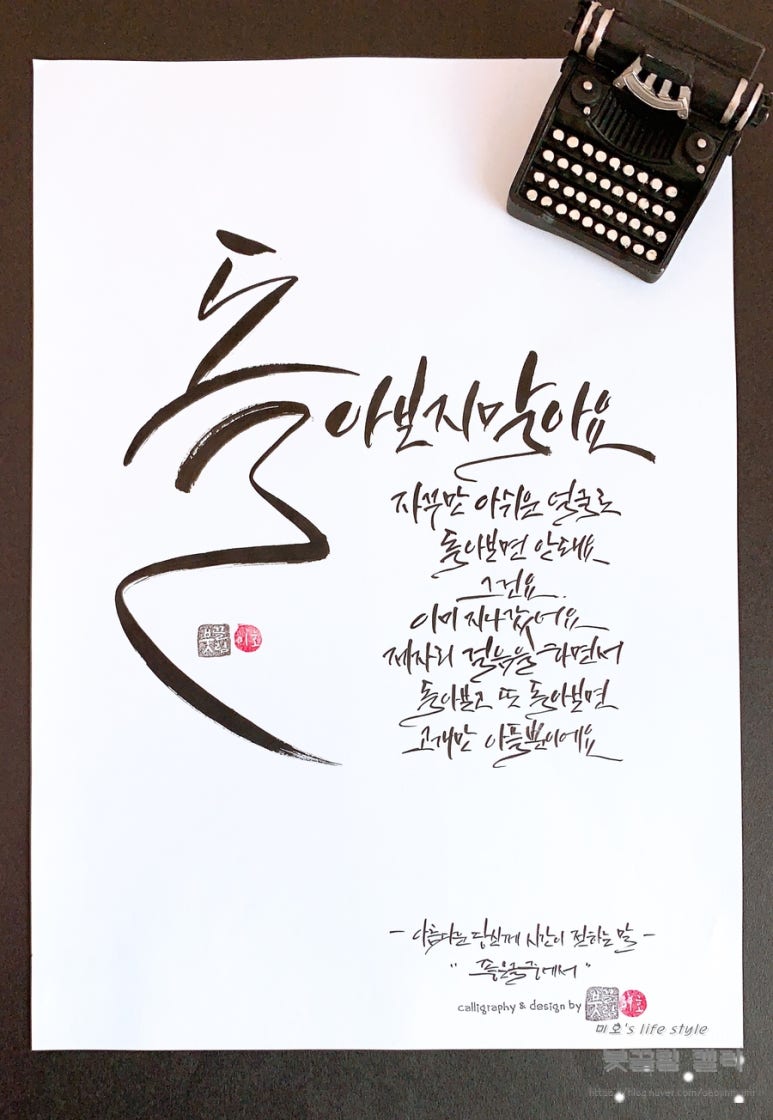 돌아보지말아요
자꾸만 아쉬운 얼굴로
돌아보면 안돼요
그건요.
이미 지나갔어요
제자리 걸음을 하면서
돌아보고 또 돌아보면
고개만 아플뿐이에요
- 아름다운 당신께 시간이 전하는 말 -
" 좋은글중에서 "
calligraphy & design by
미호's life style